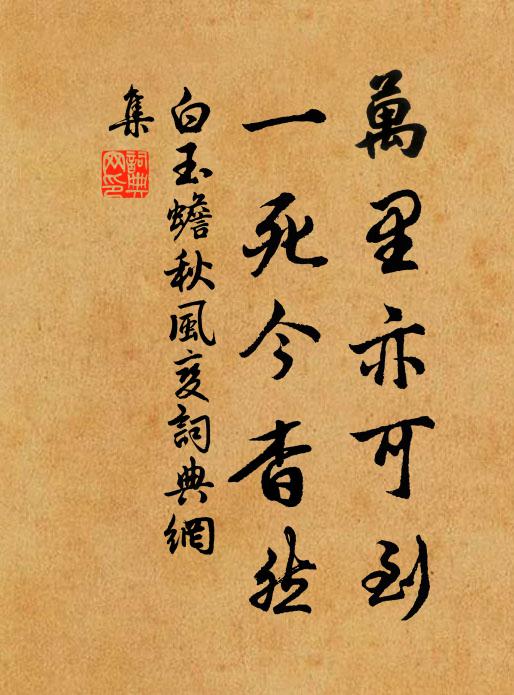 萬里亦可到
一死今杳然
白玉蟾秋風变詞典網
集
詞典网印